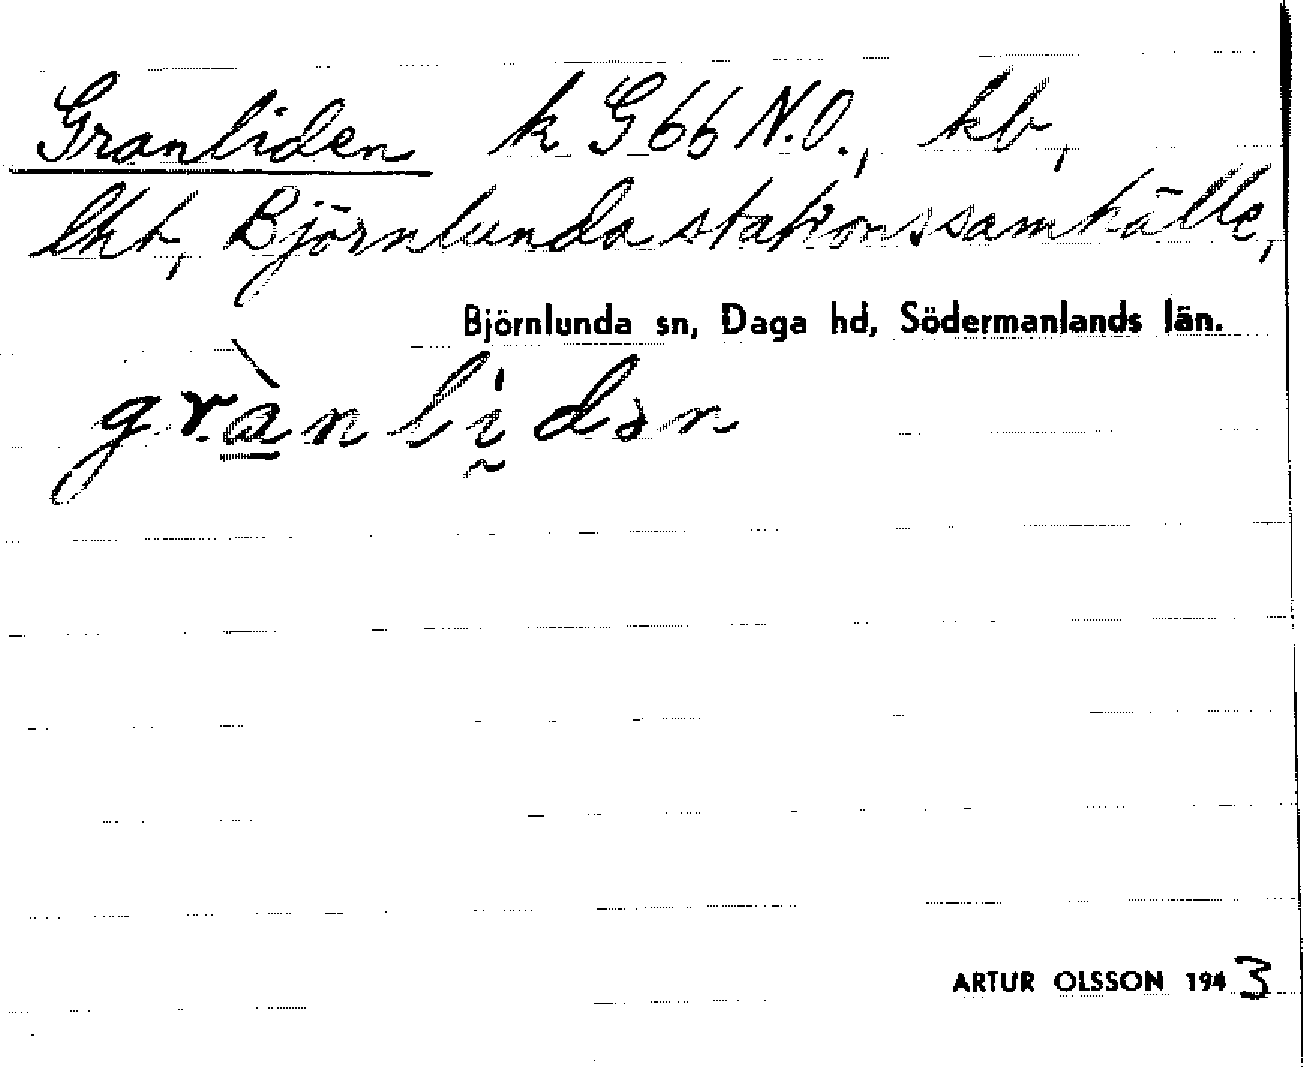 Granliden k G 66 N.O., kb,
lht, Björnlunda stationssamhälle,
Björnlunda sn, Daga hd, Södermanlands län.
grànlìdən
ARTUR OLSSON 1943